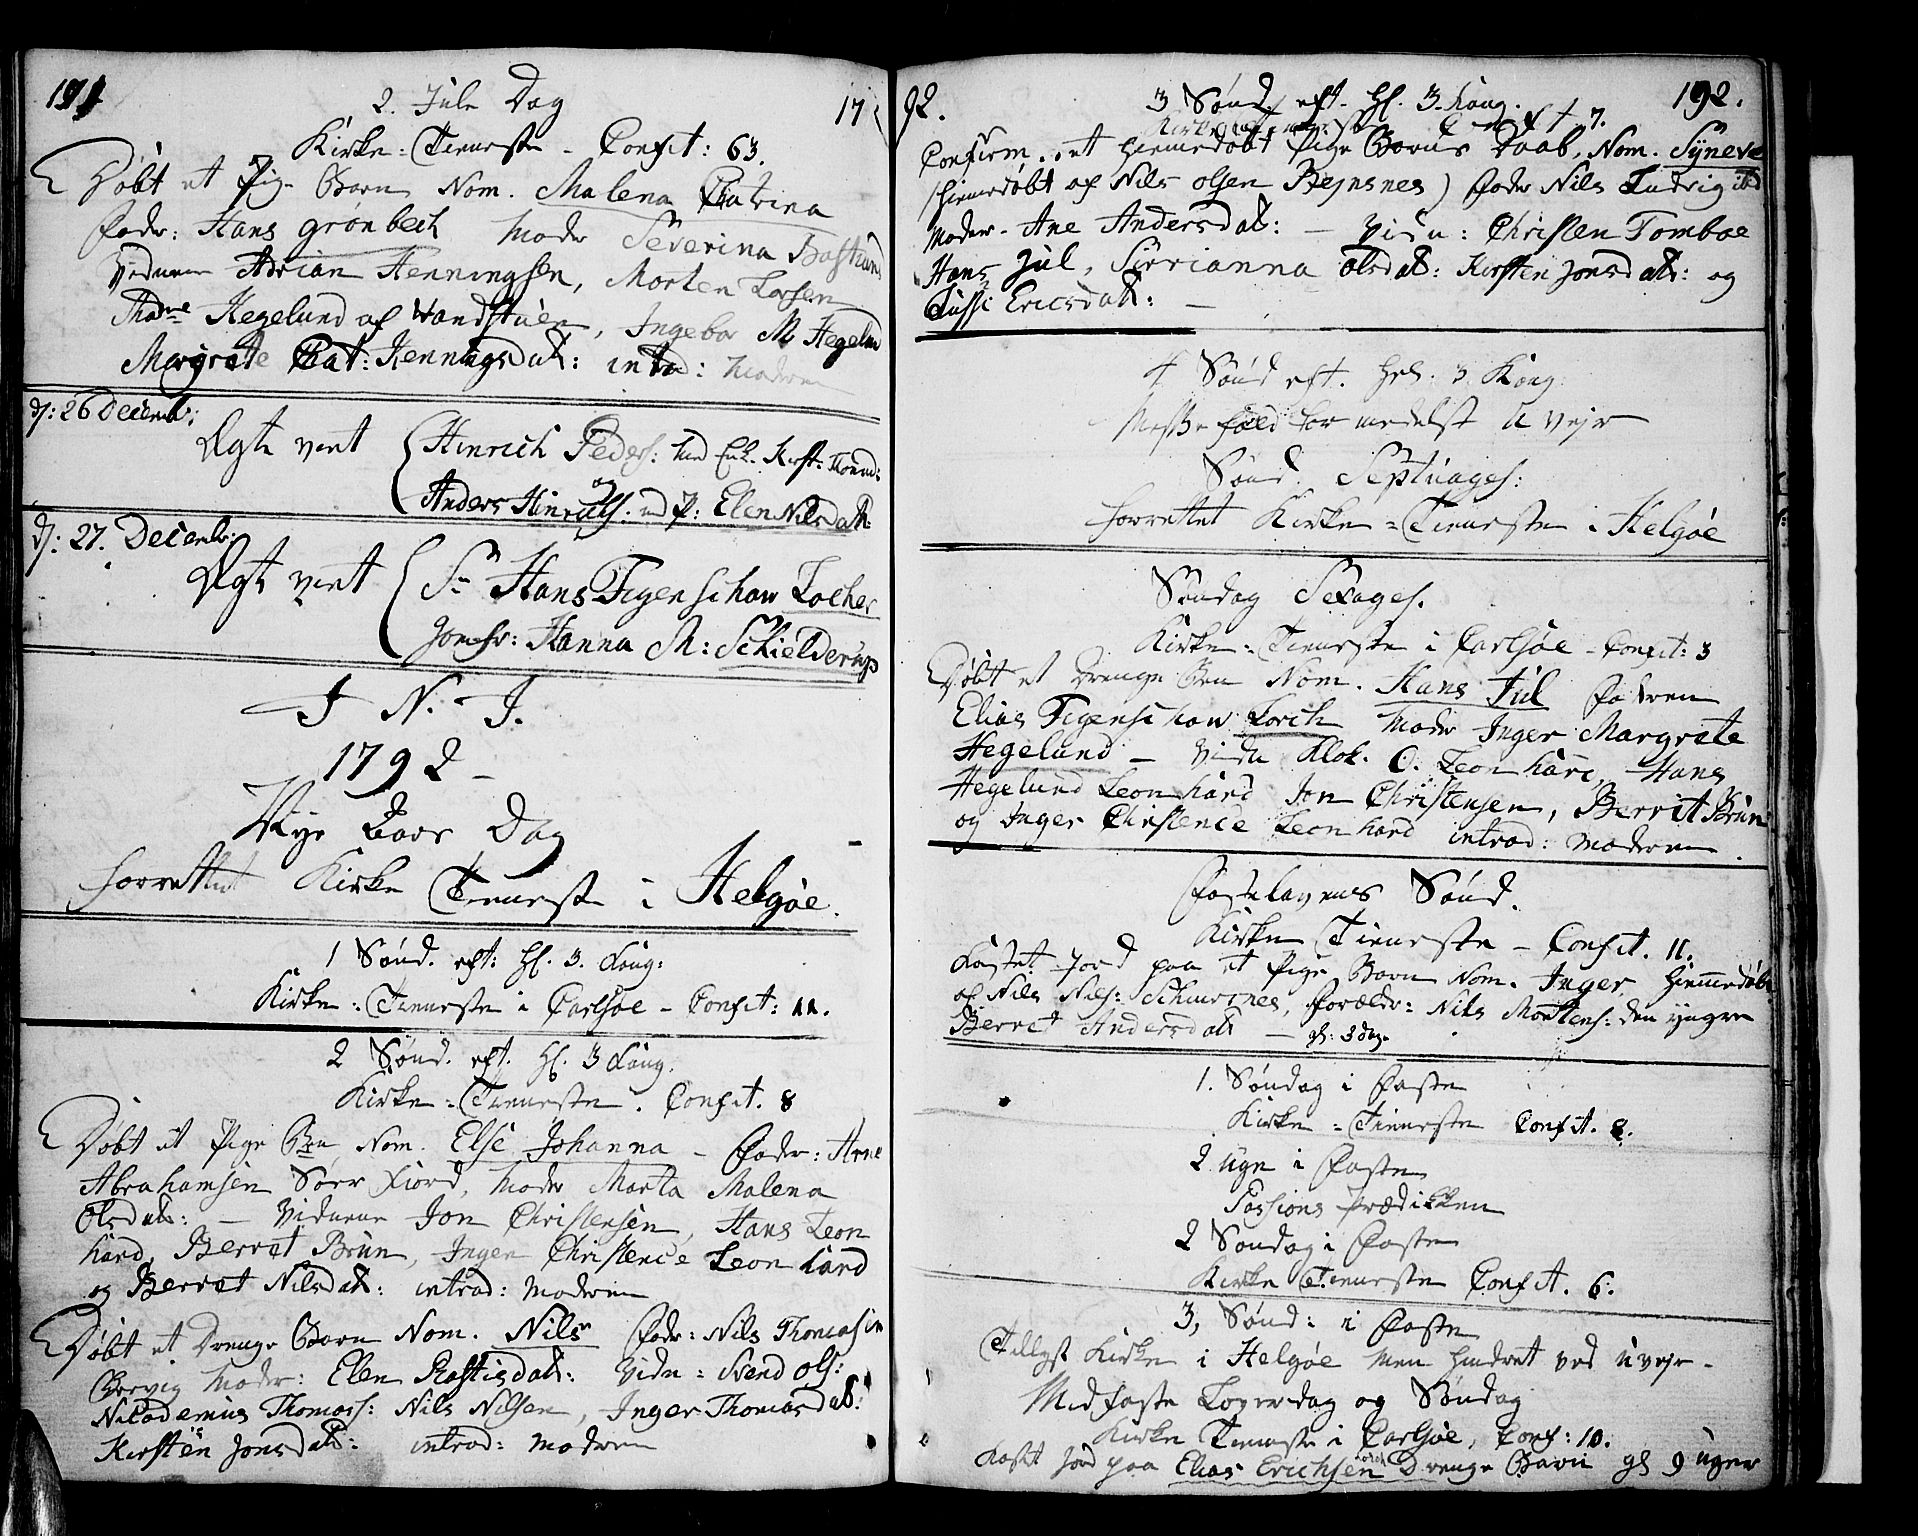 191
17
2. Jule Dag
Kirke-Tieneste - Confit: 63.
Døbt et Pige Barn Nom. Malena Catrina
Fader: Hans Grönbech Moder Severina Bastians
Vidnerne Adrian Henningsen, Morten Larsen
Hegelund af Vandstuen, Ingebor M Hegelund
Margrete Cat: Hennigsdatt: introd: Moderen
d: 26 Decembr:
Ægte viet Hinrich Peders: med Enk. Kirst:
og
Anders Hinrichs. med P: Elen Nilsdatt:
d: 27. Decembr:
Ægte viet Sr Hans Figenschow Locher
Jomfr: Hanna M: Schielderup
I N. J.
1792 -
Nye Aars Dag
forrettet Kirke Tieneste i Helgøe.
1 Sønd. eft: Hl. 3. Kong:
Kirke-Tieneste i Carlsøe - Confit: 11.
2 Sønd. eft. Hl. 3 Kong.
Kirke-Tieneste. Confit. 8
Døbt et Pige Bn Nom. Else Johanna - Fader: Arne
Abrahamsen Sørr Fiord, Moder Marta Malena
Olsdatt: - Vidnerne Jon Christensen, Hans Leon
hard, Berret Brun, Inger Christence Leonhard
og Berret Nilsdatt: introd: Moderen
Døbt et Drenge Barn Nom. Nils Fader: Nils Thomasen
Moder: Elen Rastisdatt: Vidn: Svend Ols:
Nicodemus Thomass: Nils Nilsen, Inger Thomasdatt:
Kirsten Jonsdatt: introd: Moderen
92.
192.
3 Sønd. eft. Hl. 3. Kong.
7.
Confirm. et Hiemmedøbt Pige Barns Daab, Nom. Syneve
(hiemedøbt af Nils Olsen Bejnsnes) Fader Nils Ludvig ibd
Moder - Ane Andersdatt: - Vidn: Christen Tomboe
Hans Jul, Sirrianna Olsdatt: Kirsten Jonsdatt: og
Ericsdatt: -
4 Sønd eft. Hel. 3 Kong.
Messefald formedelst Uvejr
Sønd. Septuages:
forrettet Kirke-Tieneste i Helgøe
Søndag Sexages.
Kirke-Tieneste i Carlsøe - Confit: 3
Døbt et Drenge Bn Nom. Hans Jul Faderen
Elias Figenschow Lorch Moder Inger Margrete
Hegelund - Vidn Klok. O. Leonhard, Hans
Hegelund Leonhard Jon Christensen, Berrit Brun
og Inger Christence Leonhard introd: Moderen.
Fastelavens Sønd.
Kirke Tieneste - Confit. 11.
Kastet Jord paa et Pige Barn Nom. Inger, hiemmedøbt
af Nils Nils: Forældr: Nils Mortens: den yngre
Berret Andersdatt - gl: 3 dag.
1. Søndag i Faste
Kirke-Tieneste Confit. 8.
2 Uge i Faste
Passions Prædicken
2 Søndag i Faste
Kirke Tieneste Confit. 6.
3, Sønd: i Faste
Tillyst Kirke i Helgøe men hindret ved Uvejr -
Midfaste Løverdag og Søndag
Kirke Tieneste i Carlsøe, Conf: 10.
Kast Jord paa Elias Erichsen Lorch Drenge Barn gl 9 Uger